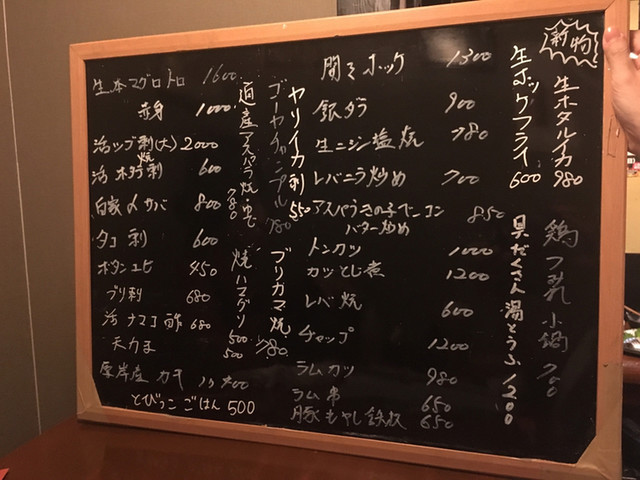 新物
生ホタルイカ 980
生ホッケフライ 600
鶏つみれ小鍋 700
具だくさん湯どうふ 1200
開きホッケ 1300
銀ダラ 900
生ニシン塩焼 780
レバニラ炒め 700
アスパラきのこベーコンバター炒め 850
トンカツ 1000
カツとじ煮 1200
レバ焼 600
チャップ 1200
ラムカツ 980
ラム串 650
豚もやし鉄板 650
ヤリイカ刺 550
ゴーヤチャンプル 780
道産アスパラ焼・ゆで 780
ブリカマ焼 780
焼ハマグリ 500
生本マグロトロ 1600
赤身 1000
活ツブ刺(大) 2000
活ホタテ刺 焼 600
自家〆サバ 800
タコ刺 600
ボタンエビ 450
ブリ刺 680
活ナマコ酢 680
500
厚岸産カキ 400
とびっこごはん 500